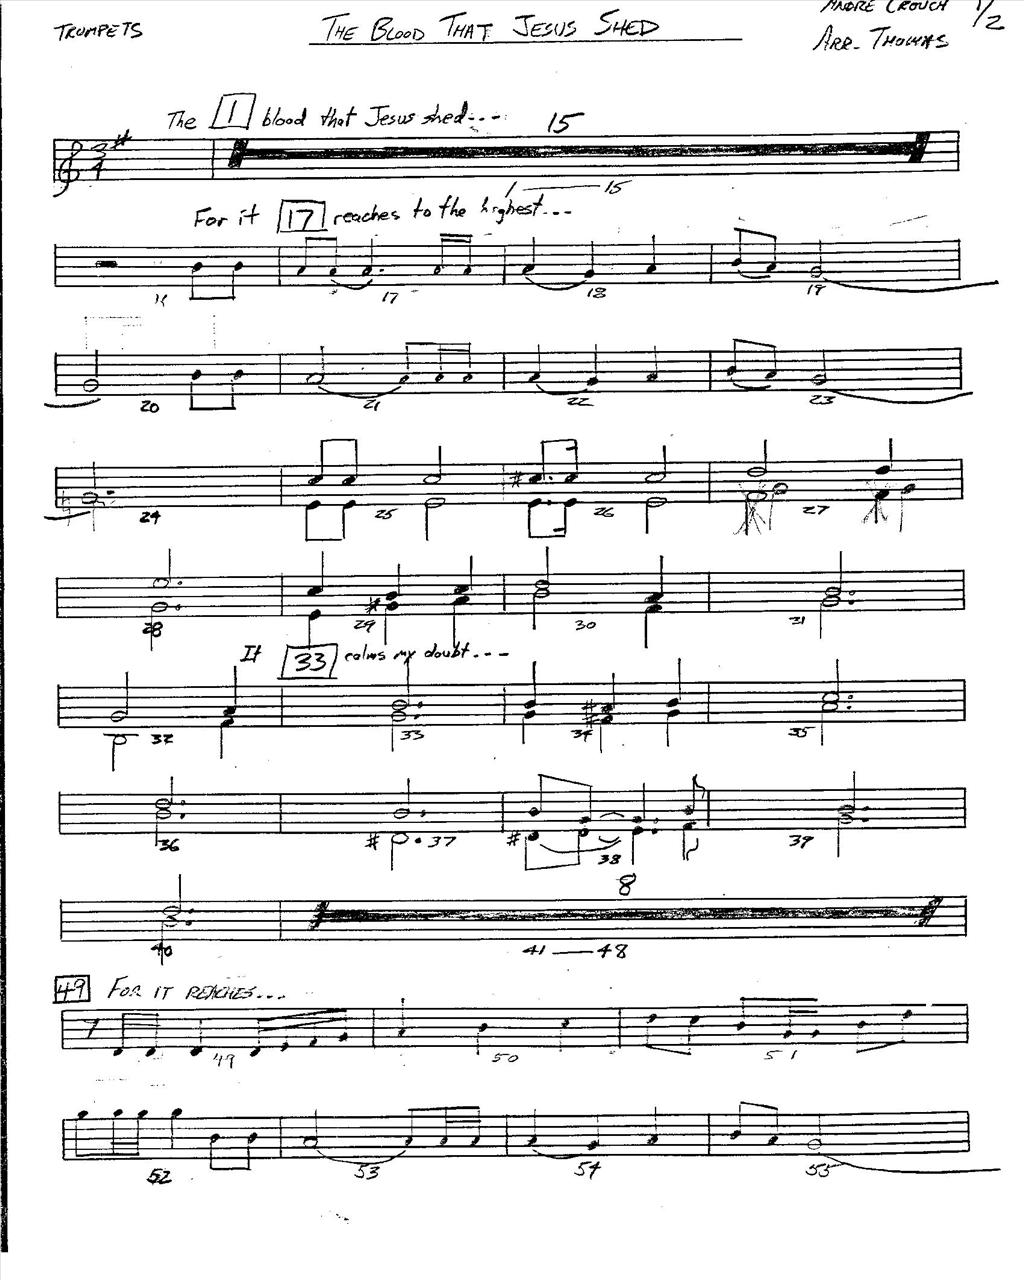 ANDRÉ CROUCH 1/2
TRUMPETS THE BLOOD THAT JESUS SHED
ARR. THOMAS
The 1 blood that Jesus shed---- 15
3
4
1 — 15
For it 17 reaches to the highest...
17 18 19
20 21 22 23
24 25 26 27
28 29 30 31
It 33 calms my doubt....
32 33 34 35
36 37 38 39
8
40 41 — 48
49 FOR IT REACHES...
49 50 51
52 53 54 55